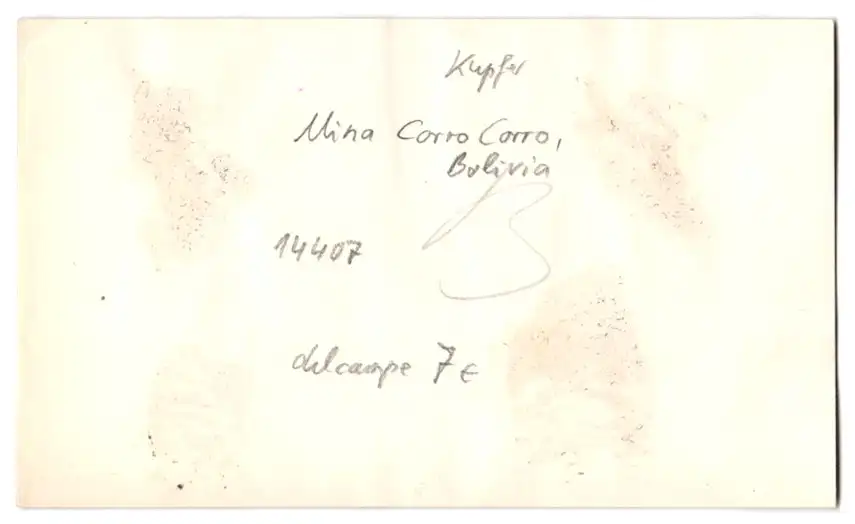 Kupfer
Mina Corro Corro,
Bolivia
B
14407
delcampe 7 €